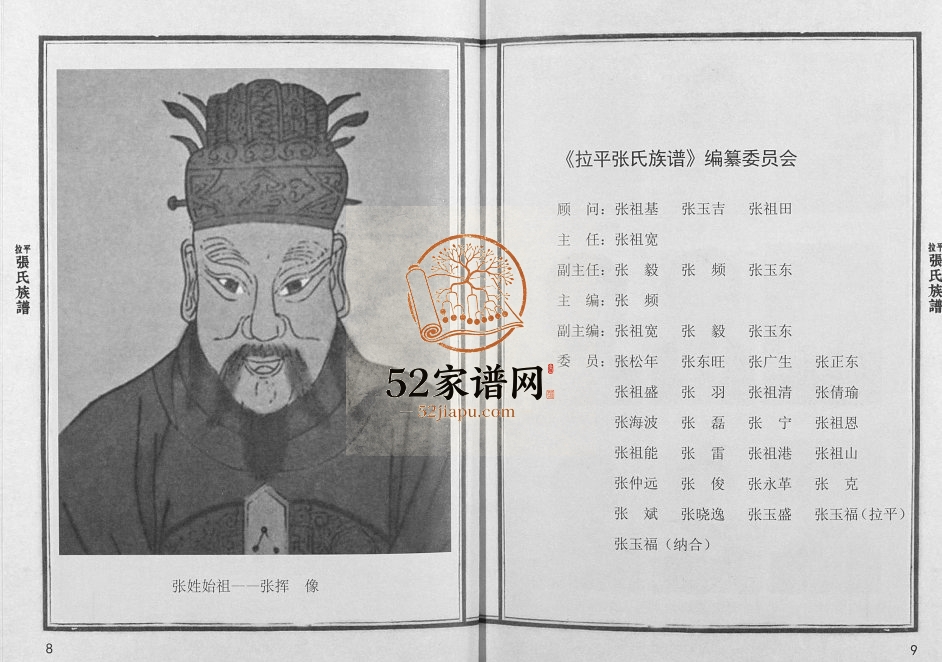 拉平
張氏族譜
张姓始祖——张挥 像
8
52家谱网
52jiapu.com
《拉平张氏族谱》编纂委员会
顾 问：张祖基 张玉吉 张祖田
主 任：张祖宽
副主任：张 毅 张 频 张玉东
主 编：张 频
副主编：张祖宽 张 毅 张玉东
委 员：张松年 张东旺 张广生 张正东
张祖盛 张 羽 张祖清 张倩瑜
张海波 张 磊 张 宁 张祖恩
张祖能 张 雷 张祖港 张祖山
张仲远 张 俊 张永革 张 克
张 斌 张晓逸 张玉盛 张玉福（拉平）
张玉福（纳合）
拉平
張氏族譜
9